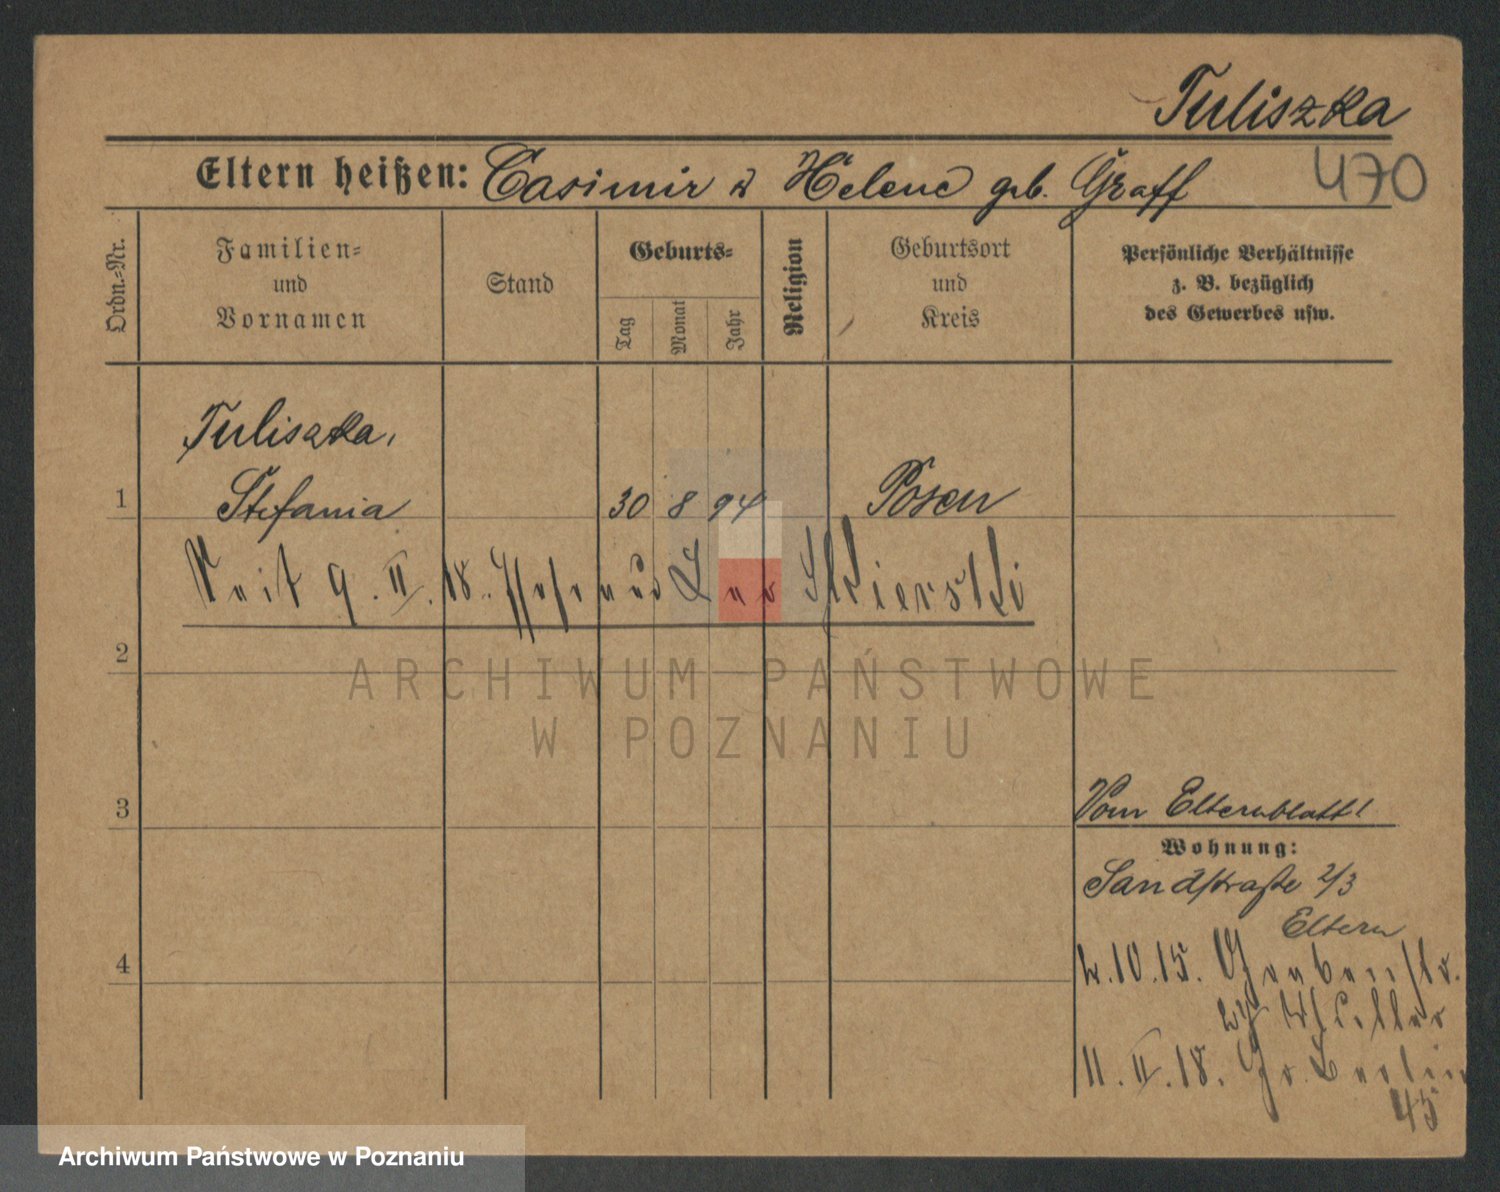 Tuliszka
Eltern heißen: Casimir u Helene geb. Graff 470
Ordn.=Nr.
Familien=
und
Vornamen
Stand
Geburts=
Tag
Monat
Jahr
Religion
Geburtsort
und
Kreis
Persönliche Verhältnisse
z. B. bezüglich
des Gewerbes usw.
Tuliszka,
1 Stefania 30 8 94 Posen
Seit 9. II. 18. Ehefrau Skierski
2
ARCHIWUM PAŃSTWOWE
W POZNANIU
3
Vom Elternblatt!
Wohnung:
Sandstraße 2/3
Eltern
4
2.10.15. Grabenstr.
Müller
11. II. 18. Gr. Berlin
45
Archiwum Państwowe w Poznaniu